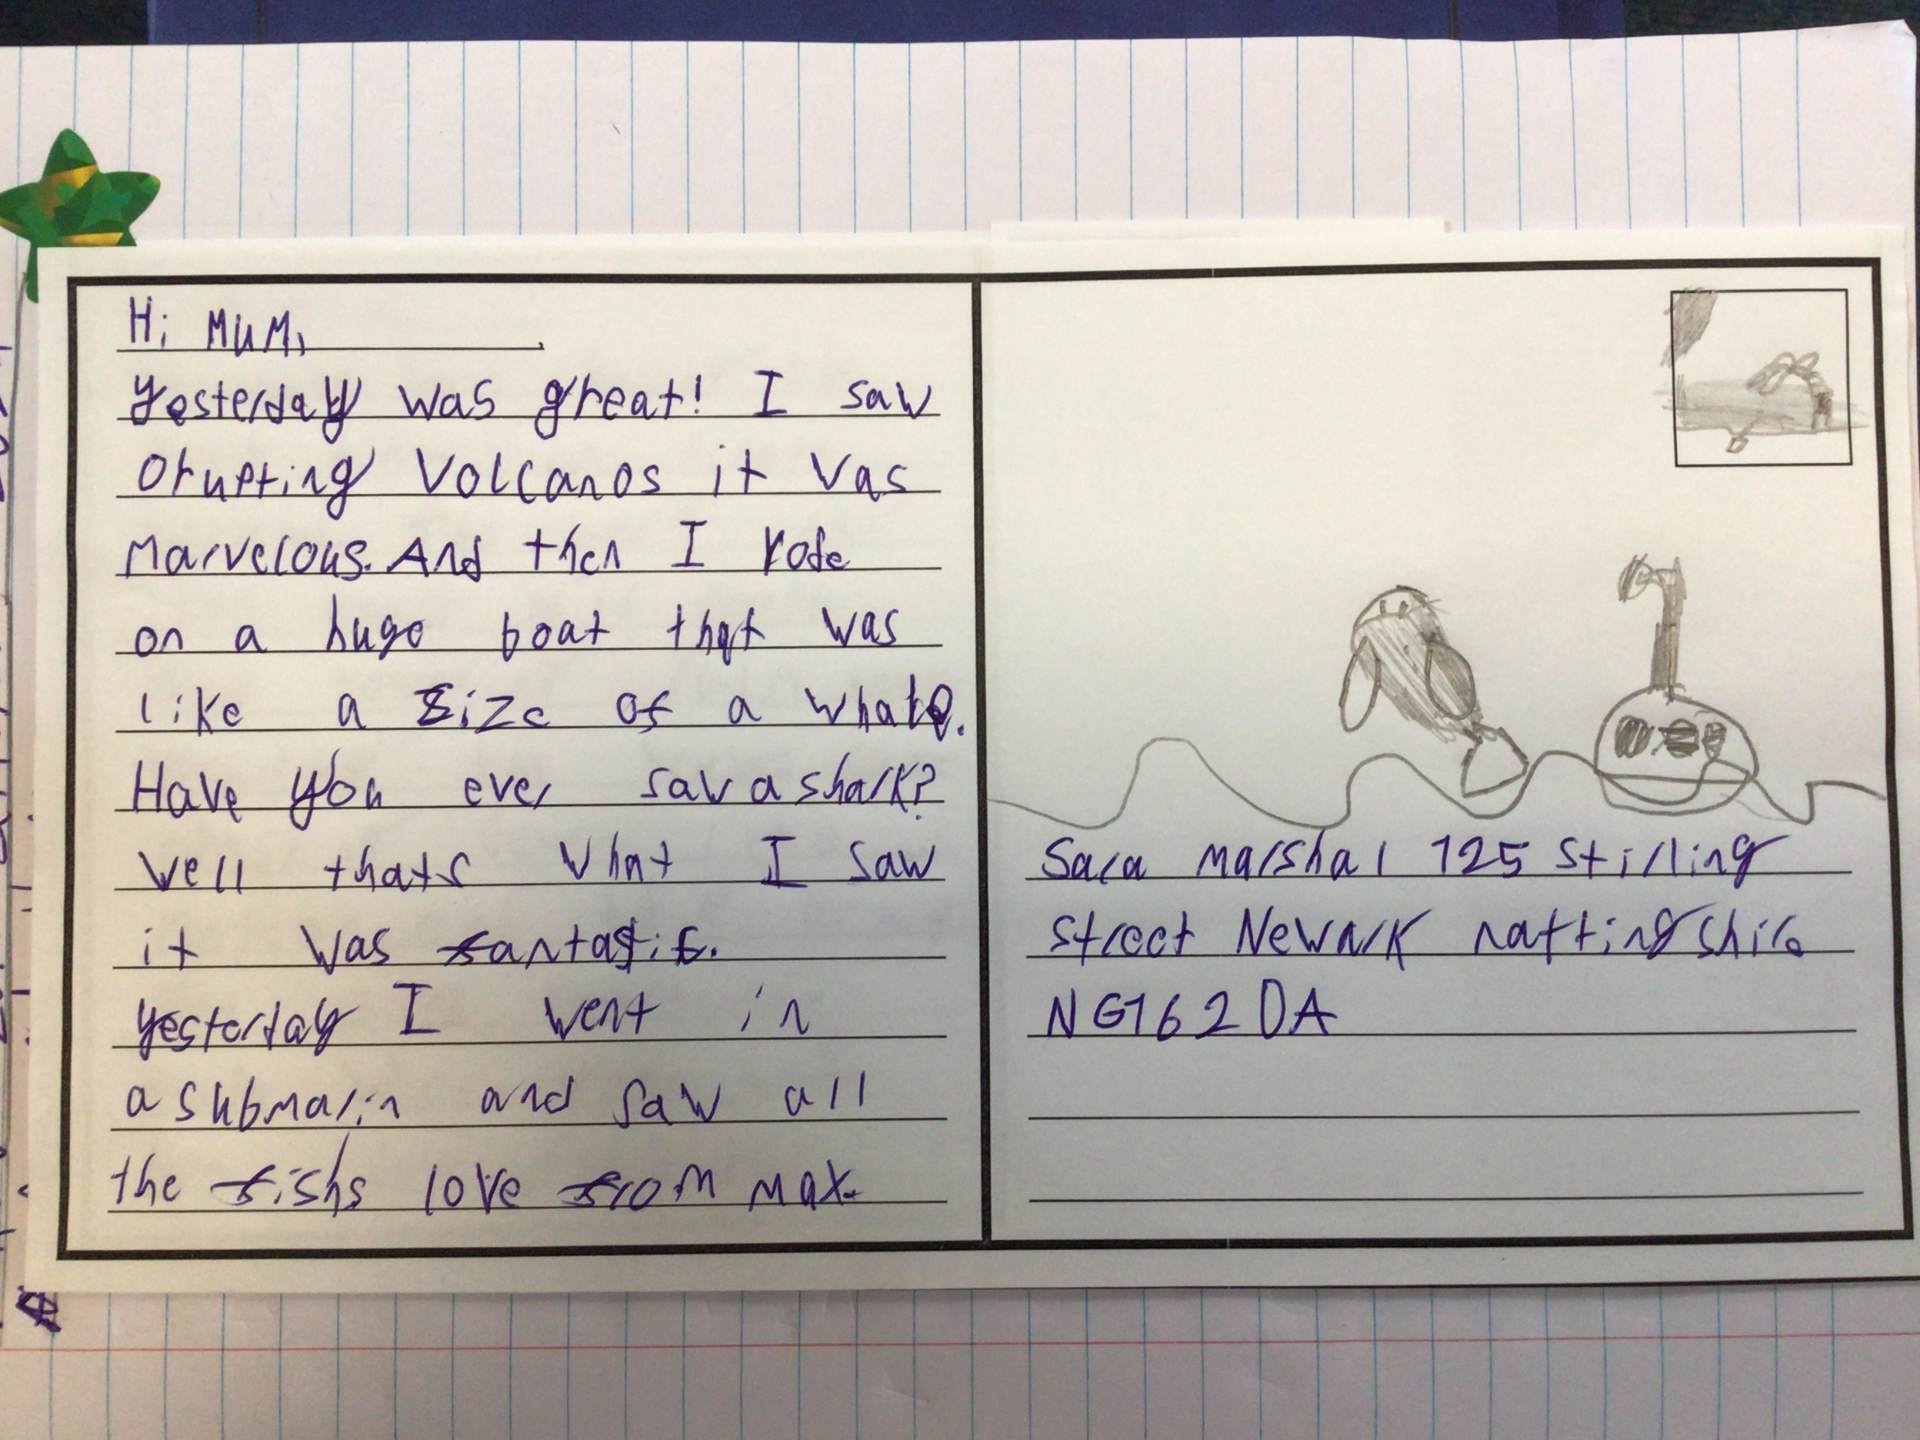 Hi MuM,
Yesterday was great! I saw
Orupting Volcanos it vas
Marvelous. And then I rode
on a huge boat that was
like a size of a whale.
Have you ever sav a shark?
Well thats vhat I saw
it was fantastic.
yesterday I went in
a submarin and saw all
the fishs love from max.
Sara marshal 125 Stirling
Street Newark nottingshire
NG162DA